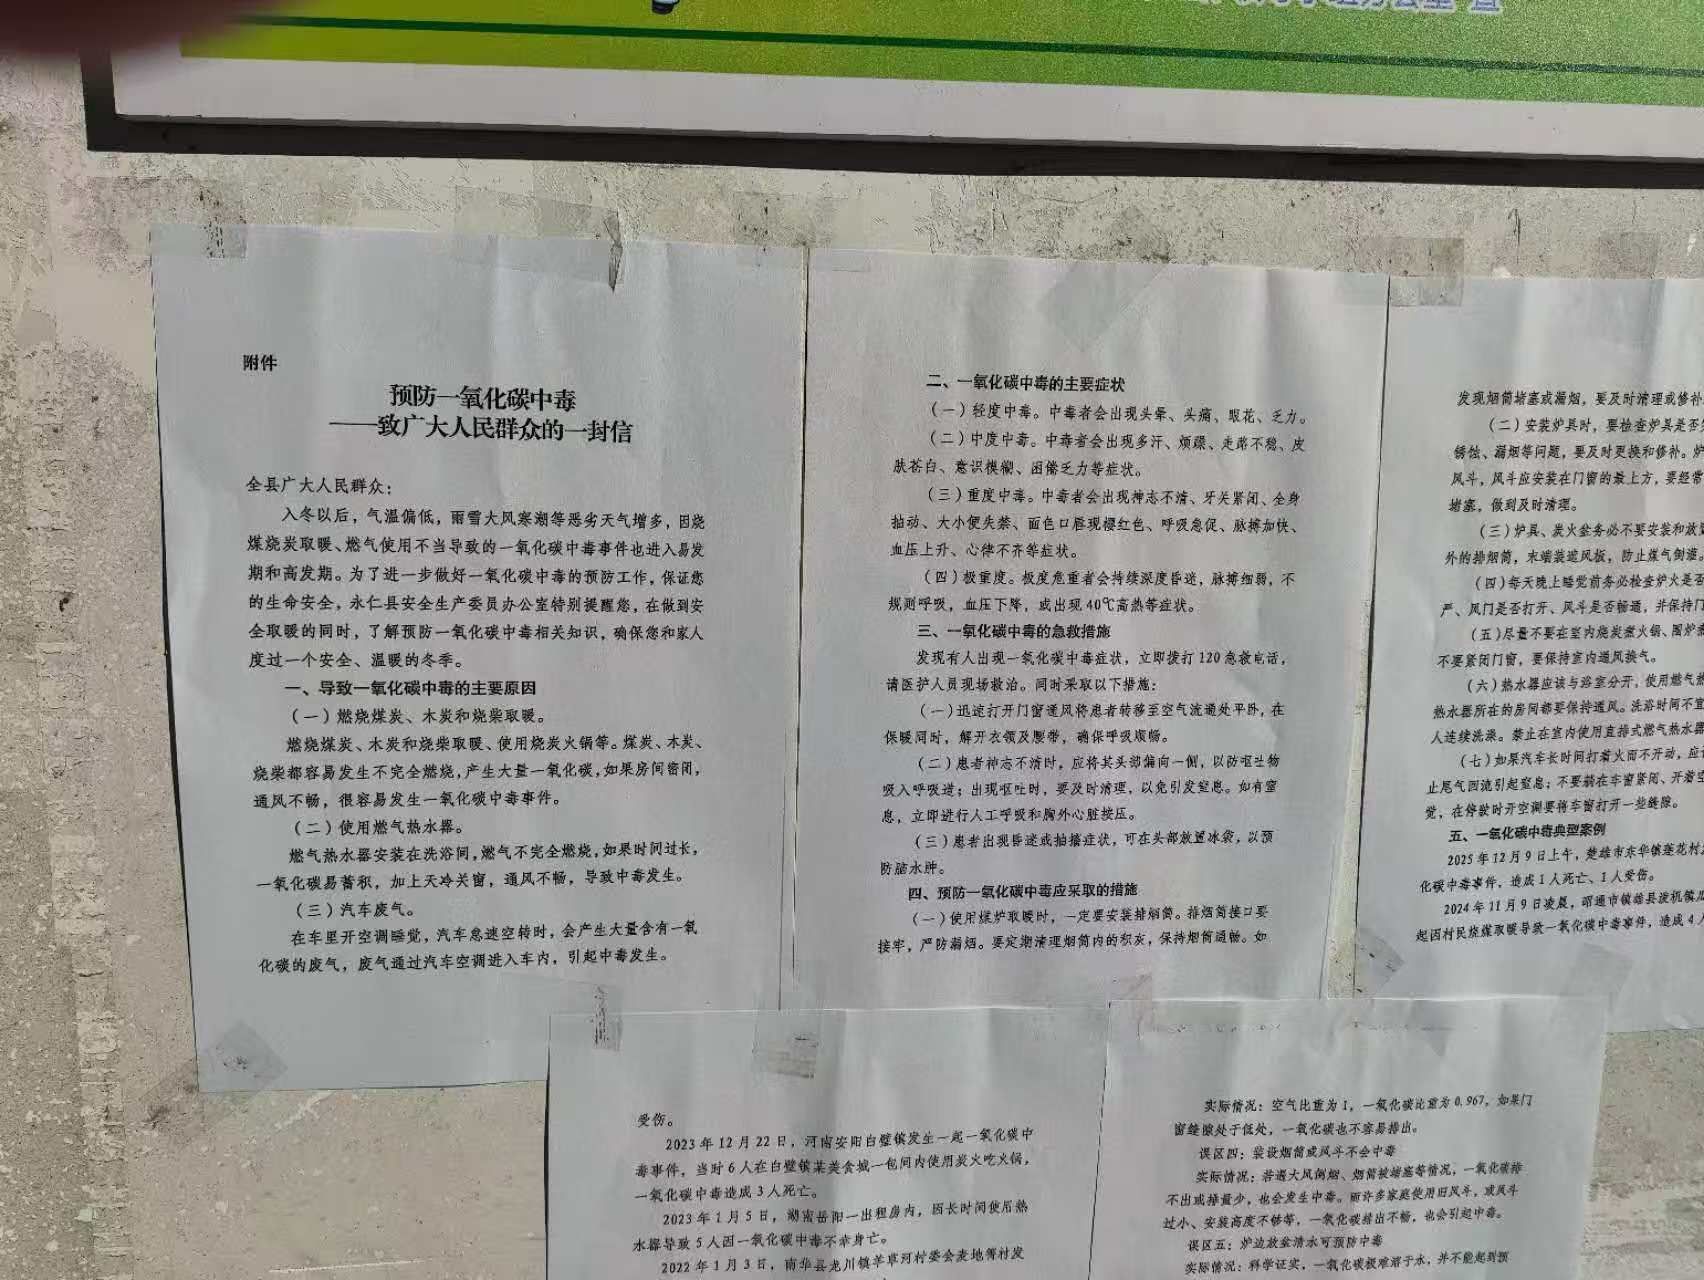 附件
预防一氧化碳中毒
——致广大人民群众的一封信
全县广大人民群众：
入冬以后，气温偏低，雨雪大风寒潮等恶劣天气增多，因烧
煤烧炭取暖、燃气使用不当导致的一氧化碳中毒事件也进入易发
期和高发期。为了进一步做好一氧化碳中毒的预防工作，保证您
的生命安全，永仁县安全生产委员办公室特别提醒您，在做到安
全取暖的同时，了解预防一氧化碳中毒相关知识，确保您和家人
度过一个安全、温暖的冬季。
一、导致一氧化碳中毒的主要原因
（一）燃烧煤炭、木炭和烧柴取暖。
燃烧煤炭、木炭和烧柴取暖、使用烧炭火锅等。煤炭、木炭、
烧柴都容易发生不完全燃烧，产生大量一氧化碳，如果房间密闭，
通风不畅，很容易发生一氧化碳中毒事件。
（二）使用燃气热水器。
燃气热水器安装在洗浴间，燃气不完全燃烧，如果时间过长，
一氧化碳易蓄积，加上天冷关窗，通风不畅，导致中毒发生。
（三）汽车废气。
在车里开空调睡觉，汽车怠速空转时，会产生大量含有一氧
化碳的废气，废气通过汽车空调进入车内，引起中毒发生。
二、一氧化碳中毒的主要症状
（一）轻度中毒。中毒者会出现头晕、头痛、眼花、乏力。
（二）中度中毒。中毒者会出现多汗、烦躁、走路不稳、皮
肤苍白、意识模糊、困倦乏力等症状。
（三）重度中毒。中毒者会出现神志不清、牙关紧闭、全身
抽动、大小便失禁、面色口唇现樱红色、呼吸急促、脉搏加快、
血压上升、心律不齐等症状。
（四）极重度。极度危重者会持续深度昏迷，脉搏细弱，不
规则呼吸，血压下降，或出现40℃高热等症状。
三、一氧化碳中毒的急救措施
发现有人出现一氧化碳中毒症状，立即拨打120急救电话，
请医护人员现场救治。同时采取以下措施：
（一）迅速打开门窗通风将患者转移至空气流通处平卧，在
保暖同时，解开衣领及腰带，确保呼吸顺畅。
（二）患者神志不清时，应将其头部偏向一侧，以防呕吐物
吸入呼吸道；出现呕吐时，要及时清理，以免引发窒息。如有窒
息，立即进行人工呼吸和胸外心脏按压。
（三）患者出现昏迷或抽搐症状，可在头部放置冰袋，以预
防脑水肿。
四、预防一氧化碳中毒应采取的措施
（一）使用煤炉取暖时，一定要安装排烟筒。排烟筒接口要
接牢，严防漏烟。要定期清理烟筒内的积灰，保持烟筒通畅。如
发现烟筒堵塞或漏烟，要及时清理或修补
（二）安装炉具时，要检查炉具是否
锈蚀、漏烟等问题，要及时更换和修补。炉
风斗，风斗应安装在门窗的最上方，要经常
堵塞，做到及时清理。
（三）炉具、炭火盆务必不要安装和放置
外的排烟筒，末端装遮风板，防止煤气倒灌。
（四）每天晚上睡觉前务必检查炉火是否
严、风门是否打开、风斗是否畅通，并保持门
（五）尽量不要在室内烧炭煮火锅、围炉煮
不要紧闭门窗，要保持室内通风换气。
（六）热水器应该与浴室分开，使用燃气热
热水器所在的房间都要保持通风。洗浴时间不宜
人连续洗澡。禁止在室内使用直排式燃气热水器
（七）如果汽车长时间打着火而不开动，应
止尾气回流引起窒息；不要躺在车窗紧闭、开着空
觉，在停驶时开空调要将车窗打开一些缝隙。
五、一氧化碳中毒典型案例
2025年12月9日上午，楚雄市东华镇莲花村
化碳中毒事件，造成1人死亡、1人受伤。
2024年11月9日凌晨，昭通市镇雄县泼机镇
起因村民烧煤取暖导致一氧化碳中毒事件，造成4人
受伤。
2023年12月22日，河南安阳白壁镇发生一起一氧化碳中
毒事件，当时6人在白壁镇某美食城一包间内使用炭火吃火锅，
一氧化碳中毒造成3人死亡。
2023年1月5日，湖南岳阳一出租房内，因长时间使用热
水器导致5人因一氧化碳中毒不幸身亡。
2022年1月3日，南华县龙川镇羊草河村委会麦地箐村发
实际情况：空气比重为1，一氧化碳比重为0.967，如果门
窗缝隙处于低处，一氧化碳也不容易排出。
误区四：装设烟筒或风斗不会中毒
实际情况：若遇大风倒烟、烟筒被堵塞等情况，一氧化碳排
不出或排量少，也会发生中毒。而许多家庭使用旧风斗，或风斗
过小、安装高度不够等，一氧化碳排出不畅，也会引起中毒。
误区五：炉边放盆清水可预防中毒
实际情况：科学证实，一氧化碳极难溶于水，并不能起到预